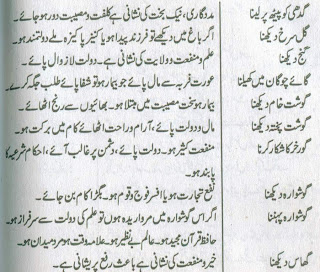 گدھی کو پیٹھ پر لینا مددگاری، نیک بخت کی نشانی ہے کلفت و مصیبت دور ہو جائے۔
گل سرخ دیکھنا اگر باغ میں دیکھے تو فرزند پیدا ہو یا کنیز پاکیزہ ملے دولتمند ہو۔
گنج دیکھنا علم و منفعت و ولایت کی نشانی ہے۔ دولت لازوال پائے۔
گائے چوگان میں کھیلنا عورت فربہ سے مال پائے جو بیمار ہو تو شفا پائے طلب جگہ کرے۔
گوشت خام دیکھنا بیمار ہو سخت مصیبت میں مبتلا ہو۔ بھائیوں سے رنج اٹھائے۔
گوشت پختہ دیکھنا مال و دولت پائے، آرام و راحت اٹھائے کام میں برکت ہو۔
گورخر کا شکار کرنا منفعت کثیر ہو۔ دولت پائے، دشمن پر غالب آئے، احکام شرعیہ کا
پابند ہو۔
گوشوارہ دیکھنا نفع تجارت ہو یا افسر فوج و قوم ہو۔ بگڑا کام بن جائے۔
گوشوارہ پہننا اگر اس گوشوارہ میں مروارید ہوں تو علم کی دولت سے سرفراز ہو۔
حافظ قرآن مجید ہو۔ عالم بے نظیر ہو۔ علامہ وقت ہو مرد میدان ہو۔
گھاس دیکھنا خیر و منفعت کی نشانی ہے باعث رفع پریشانی ہے۔